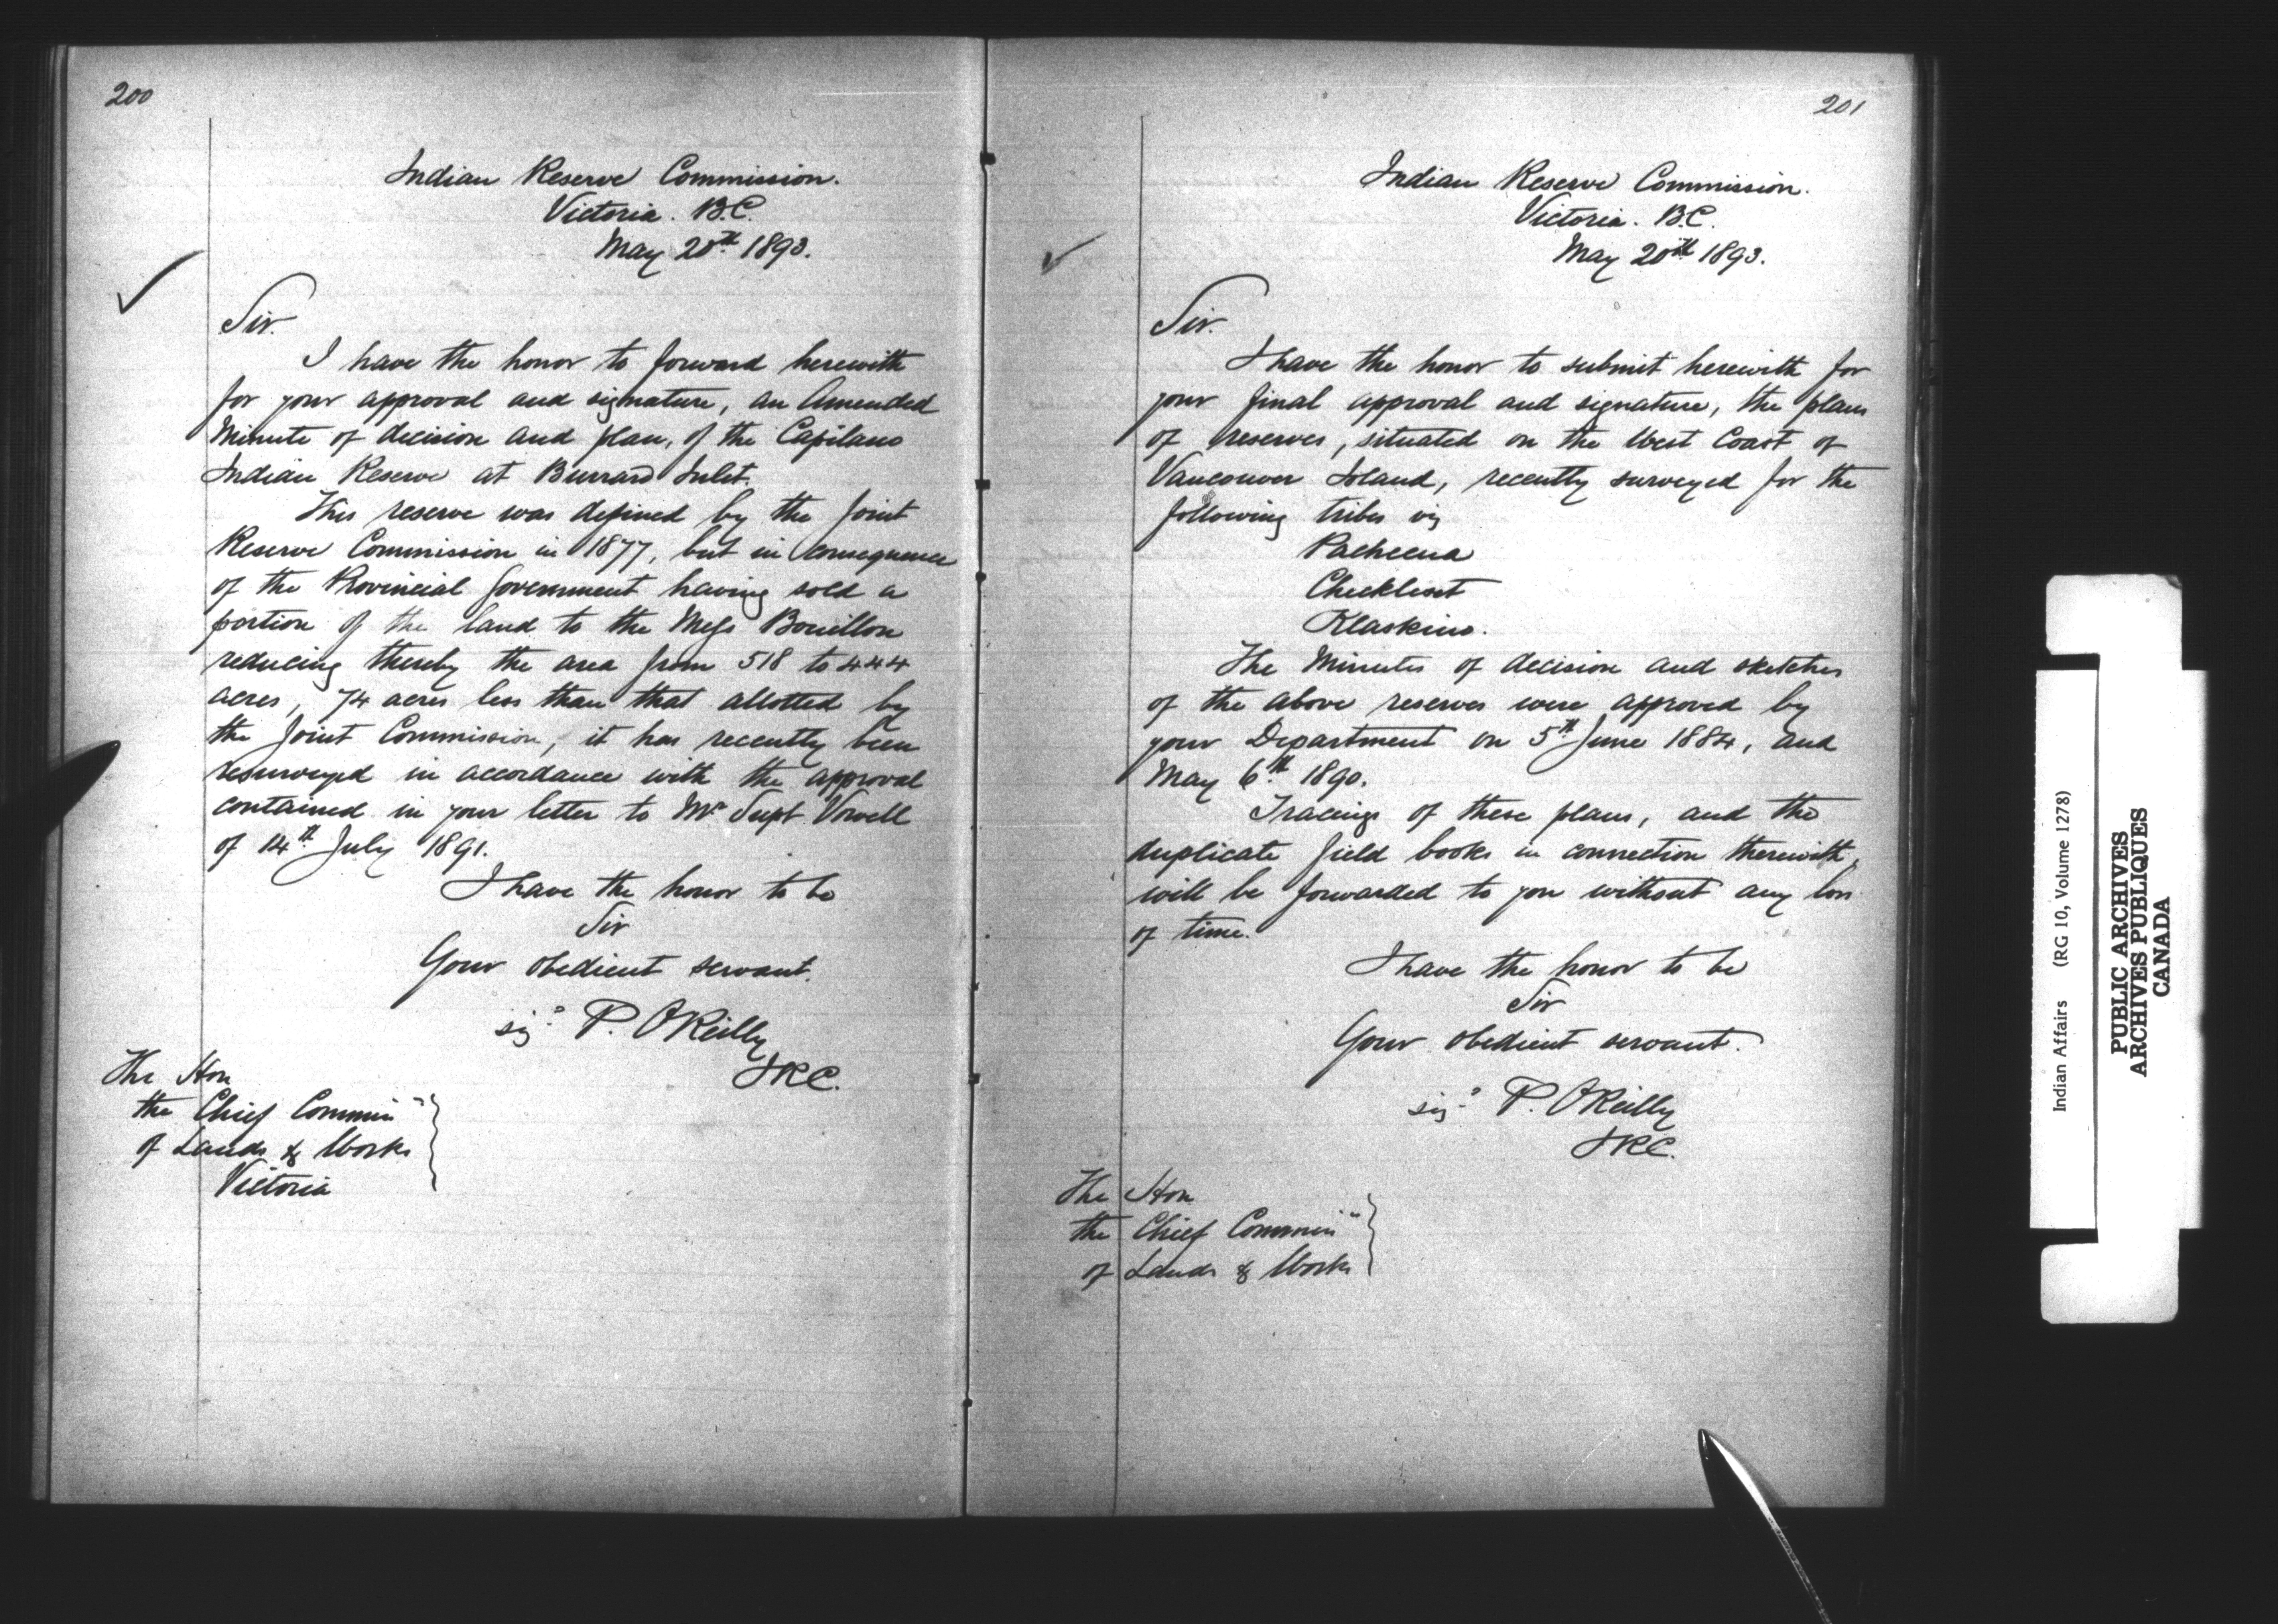 200
Indian Reserve Commission.
Victoria. B.C.
May 20th 1893.
Sir.
I have the honor to forward herewith
for your approval and signature, an Amended
Minute of decision and plan, of the Capilano
Indian Reserve at Burrard Inlet.
This reserve was defined by the Joint
Reserve Commission in 1877, but in consequence
of the Provincial Government having sold a
portion of the land to the Messrs Bouillon
reducing thereby the area from 518 to 444
acres, 74 acres less than that allotted by
the Joint Commission, it has recently been
resurveyed in accordance with the approval
contained in your letter to Mr Supt Vowell
of 14th July 1891.
I have the honor to be
Sir
Your obedient servant.
sigd P. OReilly
IRC.
The Hon
the Chief Commisr
of Lands & Works
Victoria
201
Indian Reserve Commission.
Victoria. B.C.
May 20th 1893.
Sir.
I have the honor to submit herewith for
your final approval and signature, the plans
of reserves, situated on the West Coast of
Vancouver Island, recently surveyed for the
following tribes viz
Pacheena
Checkleset
Klaskino.
The Minutes of decision and sketches
of the above reserves were approved by
your Department on 5th June 1884, and
May 6th 1890.
Tracings of these plans, and the
duplicate field books in connection therewith,
will be forwarded to you without any loss
of time.
I have the honor to be
Sir
Your obedient servant.
sigd P. OReilly
IRC.
The Hon
the Chief Commisr
of Lands & Works
Indian Affairs (RG 10, Volume 1278)
PUBLIC ARCHIVES
ARCHIVES PUBLIQUES
CANADA